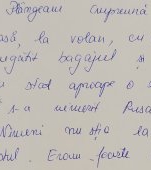 Plângeam împreună
asă, la volan, cu
egătit bagajul și
stat aproape o
s-a nimerit
Nimeni nu știa la
tul. Eram foarte